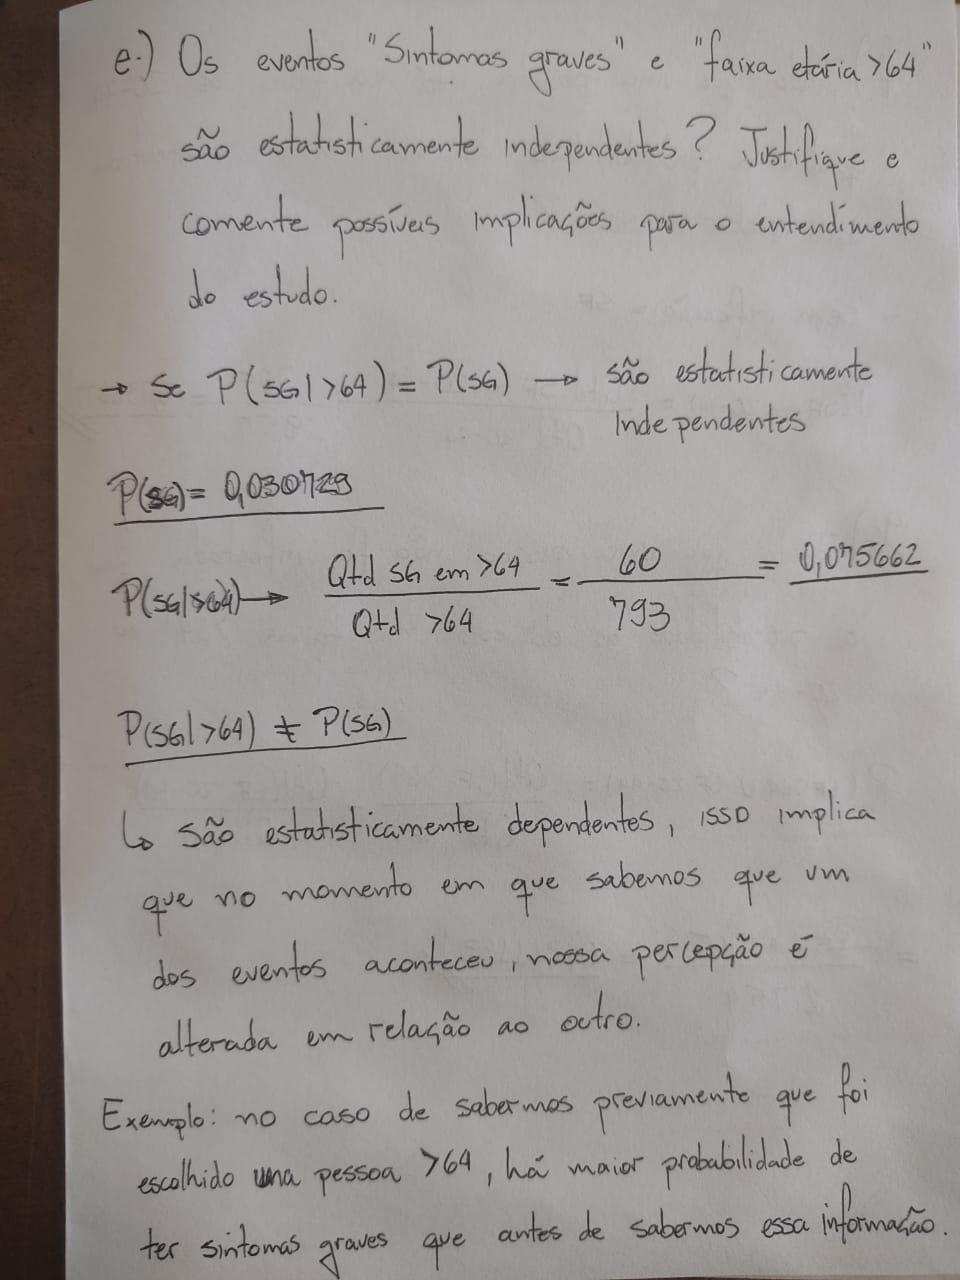 e.) Os eventos "Sintomas graves" e "faixa etária >64"
são estatisticamente independentes? Justifique e
comente possíveis implicações para o entendimento
do estudo.
→ Se P(SG|>64) = P(SG) → são estatisticamente
independentes
P(SG) = 0,030729
P(SG|>64) → Qtd SG em >64 / Qtd >64 = 60 / 793 = 0,075662
P(SG|>64) ≠ P(SG)
↳ São estatisticamente dependentes, isso implica
que no momento em que sabemos que um
dos eventos aconteceu, nossa percepção é
alterada em relação ao outro.
Exemplo: no caso de sabermos previamente que foi
escolhido uma pessoa >64, há maior probabilidade de
ter sintomas graves que antes de sabermos essa informação.